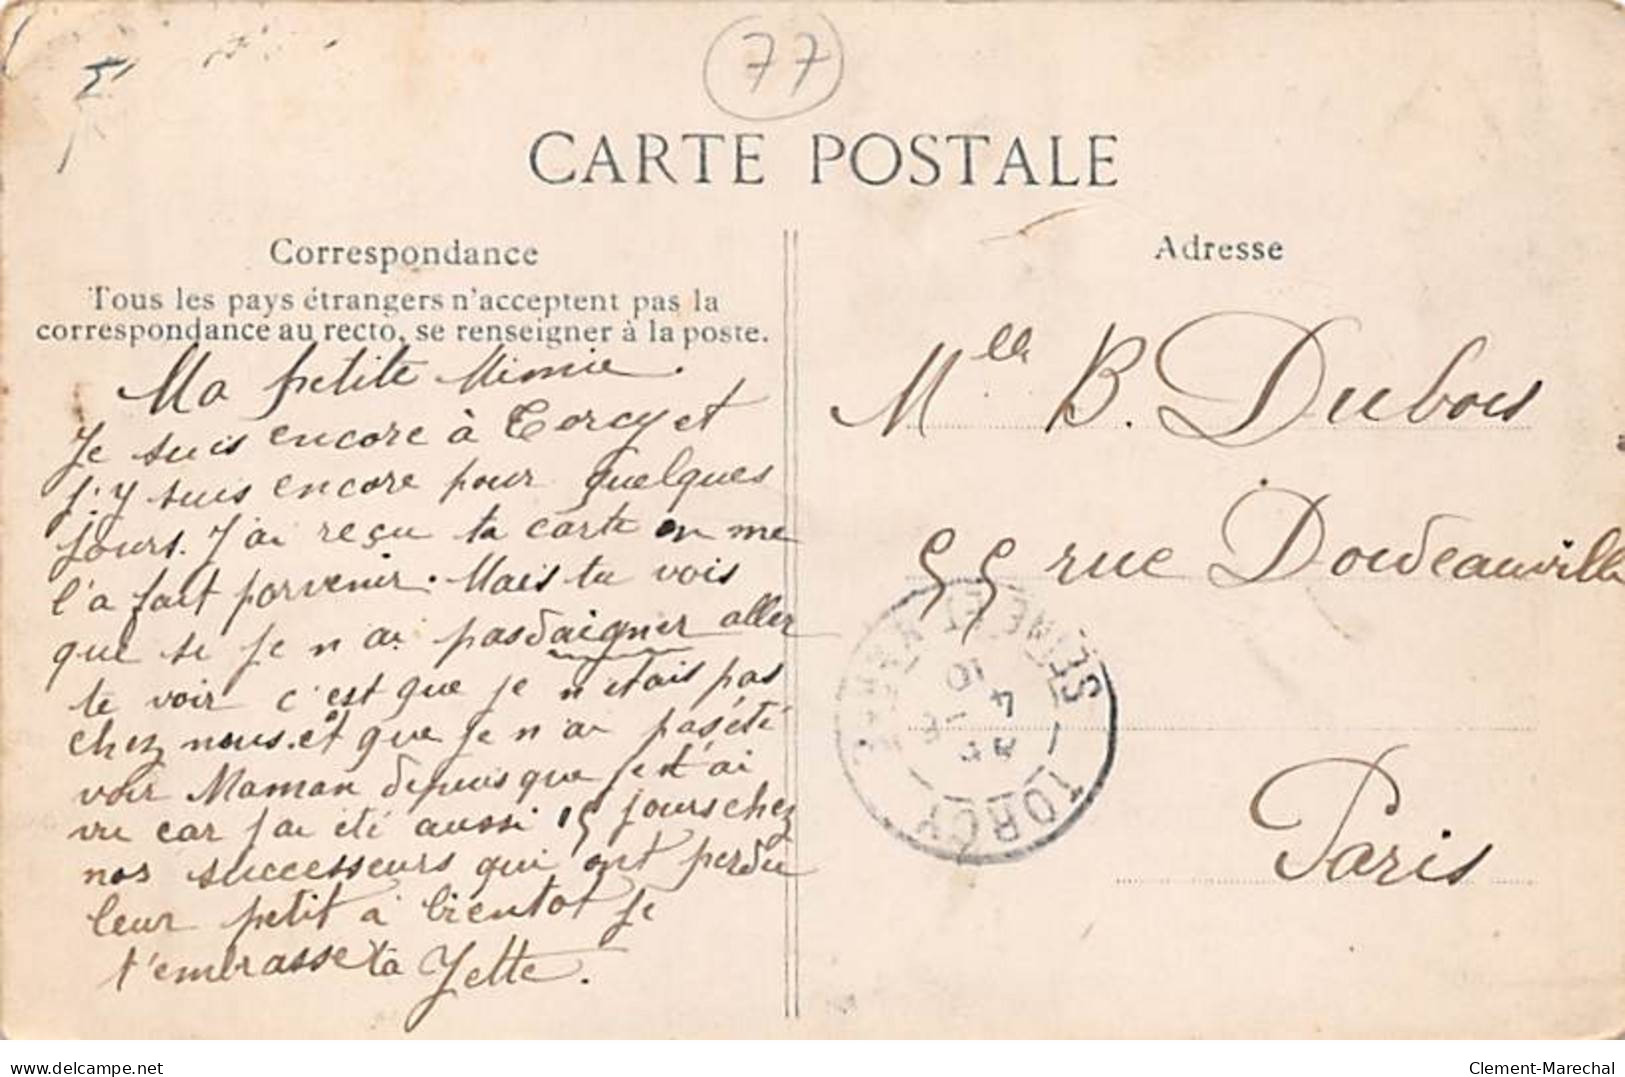 77
CARTE POSTALE
Correspondance
Tous les pays étrangers n'acceptent pas la
correspondance au recto, se renseigner à la poste.
Ma petite Mimie.
Je suis encore à Torcy et
j'y suis encore pour quelques
jours. J'ai reçu ta carte on me
l'a fait parvenir. Mais tu vois
que si je n'ai pas daigner aller
te voir c'est que je n'étais pas
chez nous. et que je n'ai pas été
voir Maman depuis que je t'ai
vu car j'ai été aussi 15 jours chez
nos successeurs qui ont perdu
leur petit à bientot je
t'embrasse ta Yette.
Adresse
Mlle B. Dubois
55 rue Doudeauville
Paris
TORCY
SEINE ET MARNE
4
10
delcampe.net
Clement-Marechal